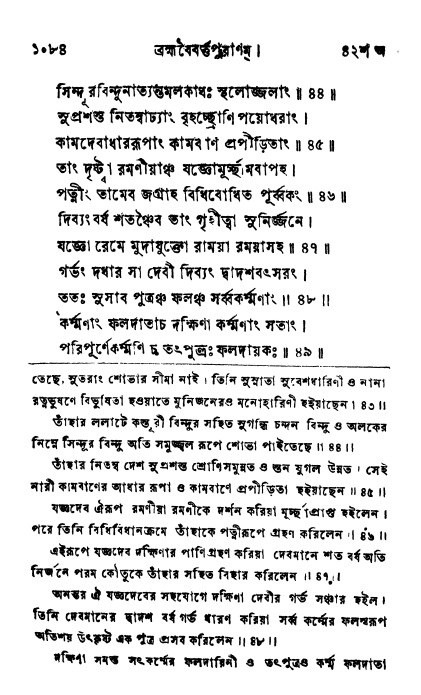 ১০৮৪ ব্রহ্মবৈবর্ত্তপুরাণম্। ৪২শ অ
সিন্দূরবিন্দুনাত্যন্তমলকাধঃ স্থলোজ্জলাং॥ ৪৪॥
সুপ্রশস্ত নিতম্বাঢ্যাং বৃহচ্ছ্রোণি পয়োধরাং।
কামদেবাধাররূপাং কামবাণ প্রপীড়িতাং॥ ৪৫॥
তাং দৃষ্ট্বা রমণীয়াঞ্চ যজ্ঞোমূর্চ্ছামবাপহ।
পত্নীং তামেব জগ্রাহ বিধিবোধিত পূর্ব্বকং॥ ৪৬॥
দিব্যংবর্ষ শতঞ্চৈব তাং গৃহীত্বা সুনির্জ্জনে।
যজ্ঞো রেমে মুদাযুক্তো রাময়া রময়াসহ॥ ৪৭॥
গর্ভং দধার সা দেবী দিব্যং দ্বাদশবৎসরং।
ততঃ সুসাব পুত্রঞ্চ ফলঞ্চ সর্ব্বকর্ম্মণাং॥ ৪৮॥
কর্ম্মণাং ফলদাতাচ দক্ষিণা কর্ম্মণাং সতাং।
পরিপূর্ণেকর্ম্মণি চ তৎপুত্রঃ ফলদায়কঃ॥ ৪৯॥
তেছে, সুতরাং শোভার সীমা নাই। তিনি সুস্নাতা সুবেশধারিণী ও নানা
রত্নভূষণে বিভূষিতা হওয়াতে মুনিজনেরও মনোহারিণী হইয়াছেন। ৪৩॥
তাঁহার ললাটে কস্তূরী বিন্দুর সহিত সুগন্ধি চন্দন বিন্দু ও অলকের
নিম্নে সিন্দূর বিন্দু অতি সমুজ্জ্বল রূপে শোভা পাইতেছে॥ ৪৪॥
তাঁহার নিতম্ব দেশ সুপ্রশস্ত শ্রোণিসমুন্নত ও স্তন যুগল উন্নত। সেই
নারী কামবাণের আধার রূপা ও কামবাণে প্রপীড়িতা হইয়াছেন॥ ৪৫॥
যজ্ঞদেব ঐরূপ রমণীয়া রমণীকে দর্শন করিয়া মূর্চ্ছাপ্রাপ্ত হইলেন।
পরে তিনি বিধিবিধানক্রমে তাঁহাকে পত্নীরূপে গ্রহণ করিলেন॥ ৪৬॥
এইরূপে যজ্ঞদেব দক্ষিণার পাণিগ্রহণ করিয়া দেবমানে শত বর্ষ অতি
নির্জনে পরম কৌতুকে তাঁহার সহিত বিহার করিলেন॥ ৪৭॥
অনন্তর ঐ যজ্ঞদেবের সহযোগে দক্ষিণা দেবীর গর্ভ সঞ্চার হইল।
তিনি দেবমানের দ্বাদশ বর্ষ গর্ভ ধারণ করিয়া সর্ব্ব কর্ম্মের ফলস্বরূপ
অতিশয় উৎকৃষ্ট এক পুত্র প্রসব করিলেন॥ ৪৮॥
দক্ষিণা সমস্ত সৎকর্ম্মের ফলদায়িনী ও তৎপুত্রও কর্ম্ম ফলদাতা